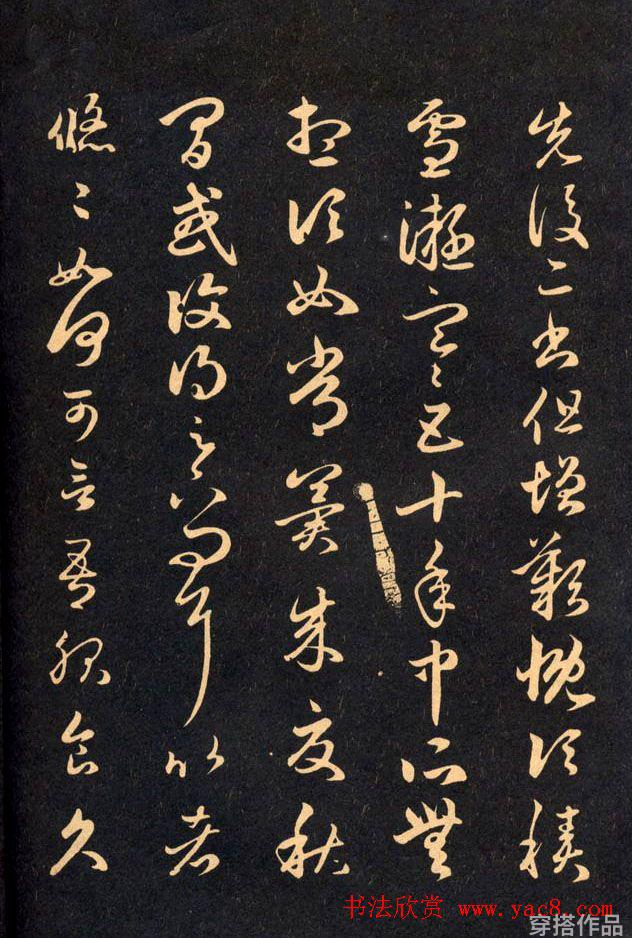 先後二書但增歎慨頃積
雪凝寒五十年中所無
想頃如常冀來夏秋
間或復得足下問耳比者
悠〻如何可言吾服食久
书法欣赏 www.yac8.com
穿搭作品